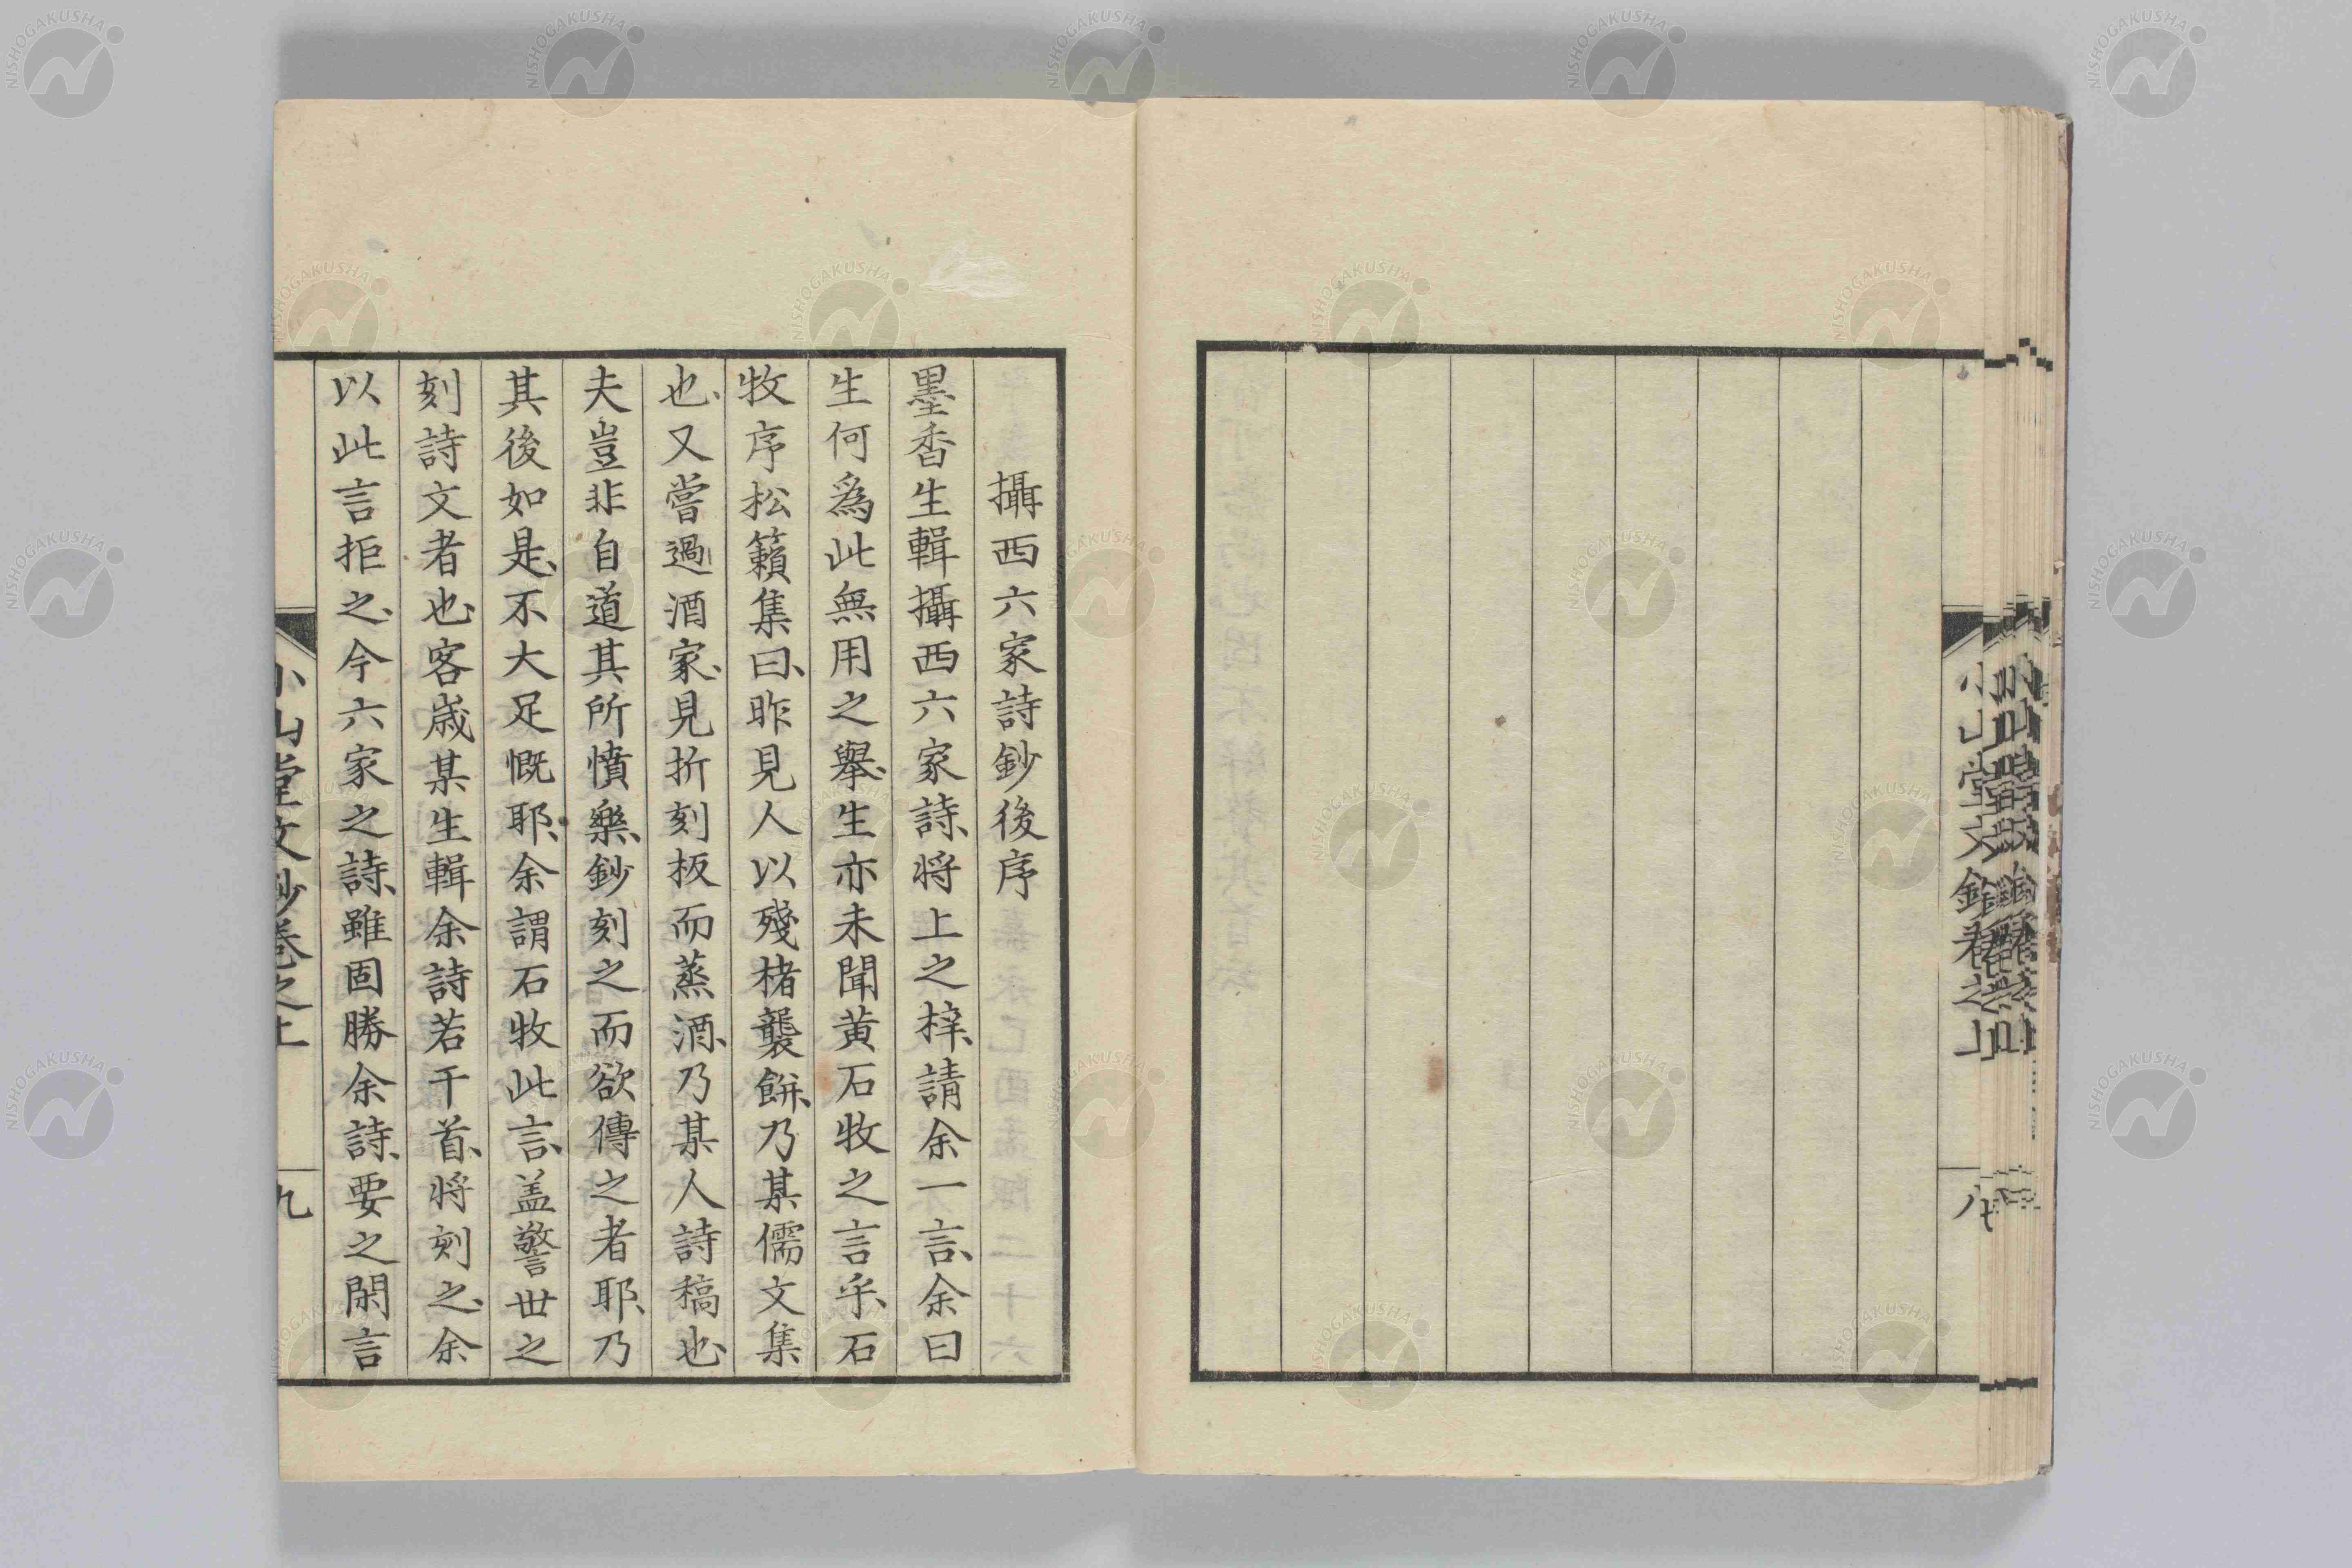 小山堂文鈔卷之上
八
攝西六家詩鈔後序
墨香生輯攝西六家詩、將上之梓、請余一言、余曰
生何爲此無用之舉、生亦未聞黄石牧之言乎、石
牧序松籟集曰、昨見人以殘楮襲餅、乃某儒文集
也、又嘗過酒家、見折刻板而蒸酒、乃某人詩稿也、
夫豈非自道其所憤樂、鈔刻之而欲傳之者耶、乃
其後如是、不大足慨耶、余謂石牧此言、盖警世之
刻詩文者也、客歳某生輯余詩若干首、將刻之、余
以此言拒之、今六家之詩、雖固勝余詩、要之閑言
小山堂文鈔卷之上
九
NISHOGAKUSHA